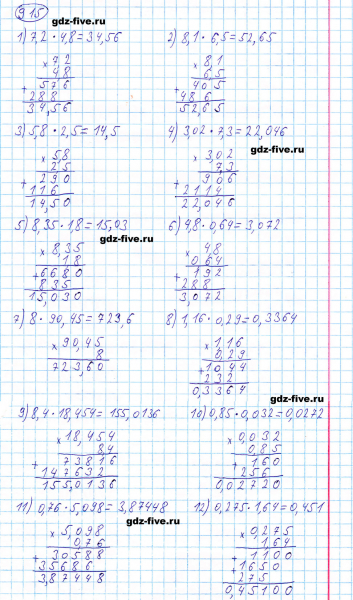 915
gdz-five.ru
1) 7,2 · 4,8 = 34,56 2) 8,1 · 6,5 = 52,65
× 7,2 × 8,1
4,8 6,5
+ 576 + 405
288 486
34,56 52,65
3) 5,8 · 2,5 = 14,5 4) 3,02 · 7,3 = 22,046
gdz-five.ru
× 5,8 × 3,02
2,5 7,3
+ 290 + 906
116 2114
14,50 22,046
5) 8,35 · 1,8 = 15,03 6) 4,8 · 0,64 = 3,072
gdz-five.ru
× 8,35 × 4,8
1,8 0,64
+ 6680 + 192
835 288
15,030 3,072
7) 8 · 90,45 = 723,6 8) 1,16 · 0,29 = 0,3364
× 90,45 × 1,16
8 0,29
723,60 + 1044
232
0,3364
gdz-five.ru
9) 8,4 · 18,454 = 155,0136 10) 0,85 · 0,032 = 0,0272
× 18,454 × 0,032
8,4 0,85
+ 73816 + 160
147632 256
155,0136 0,02720
11) 0,76 · 5,098 = 3,87448 12) 0,275 · 1,64 = 0,451
gdz-five.ru
× 5,098 × 0,275
0,76 1,64
+ 30588 + 1100
35686 1650
3,87448 275
0,45100